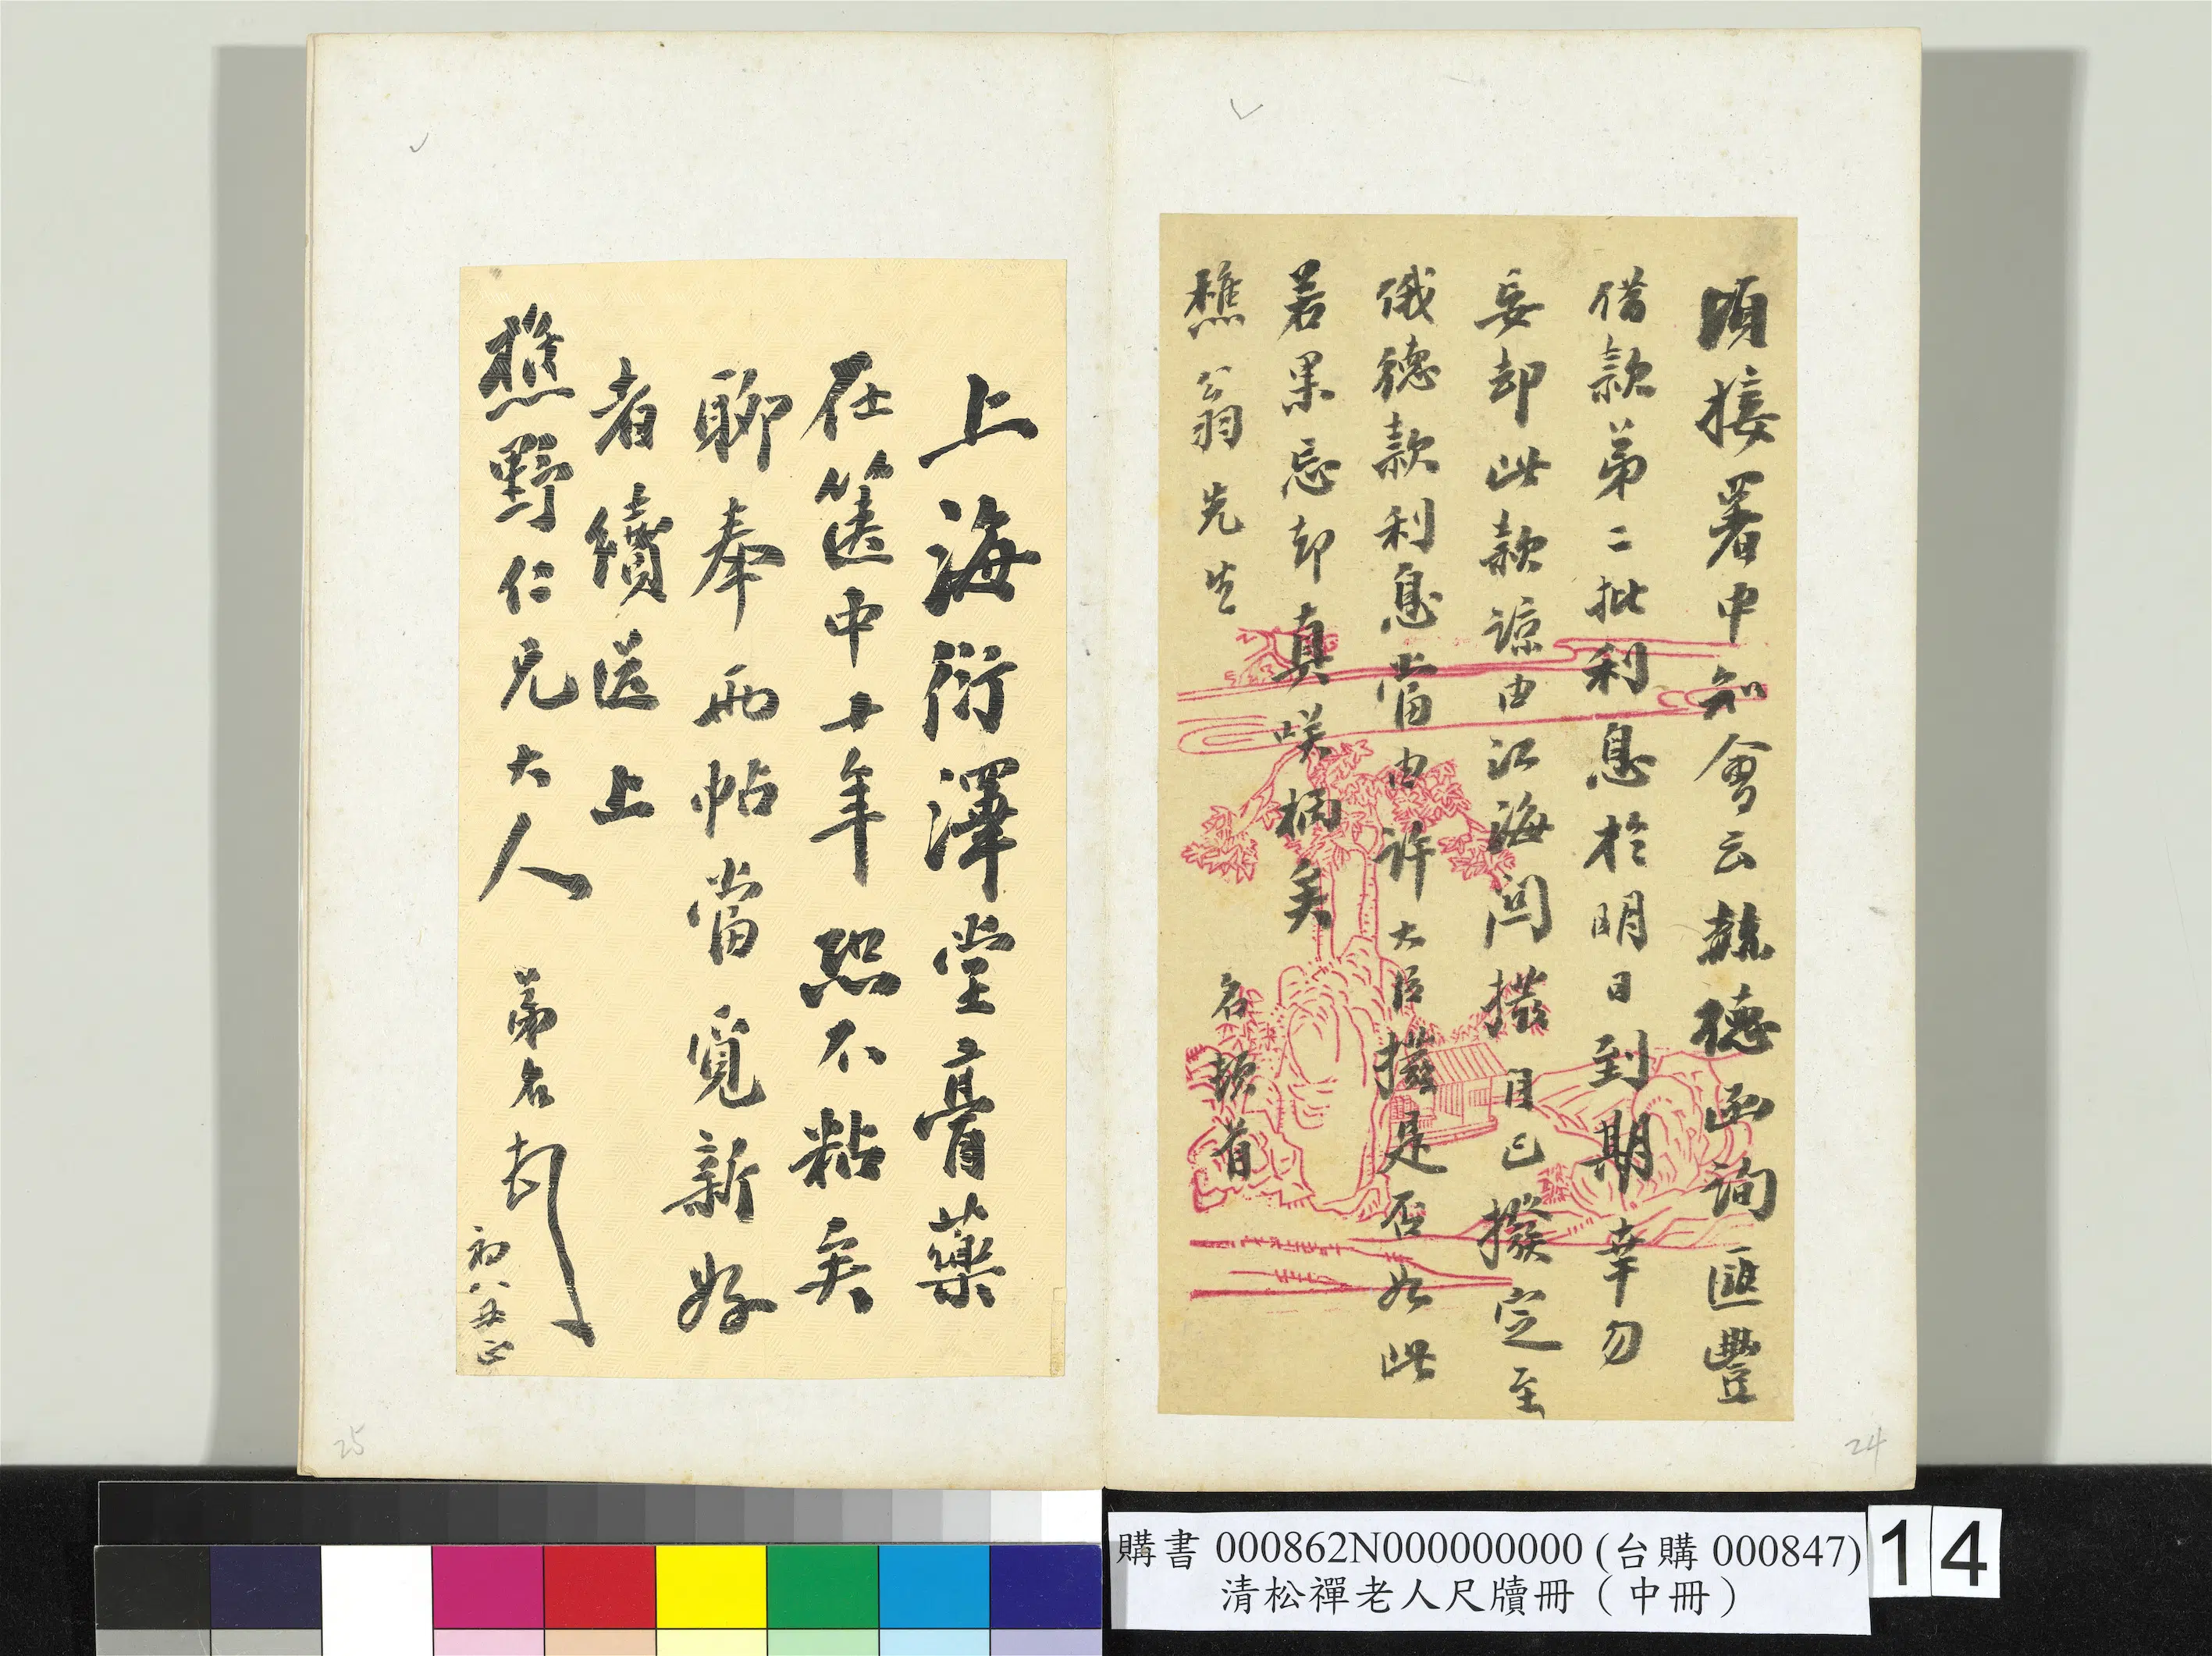 頃接署中知會云赫德函詢匯豐
借款第二批利息於明日到期幸勿
妄却此款諒由江海關撥 目已撥定至
俄德款利息當由許大臣撥是否如此
若果忘却真咲柄矣
樵公翁先生
名頓首
24
上海衍澤堂膏藥
在篋中廿年恐不粘矣
聊奉兩帖當覓新好
者續送上
樵野仁兄大人 弟名
初八
25
購書 000862N000000000 (台購 000847)
清松禪老人尺牘冊（中冊）
14